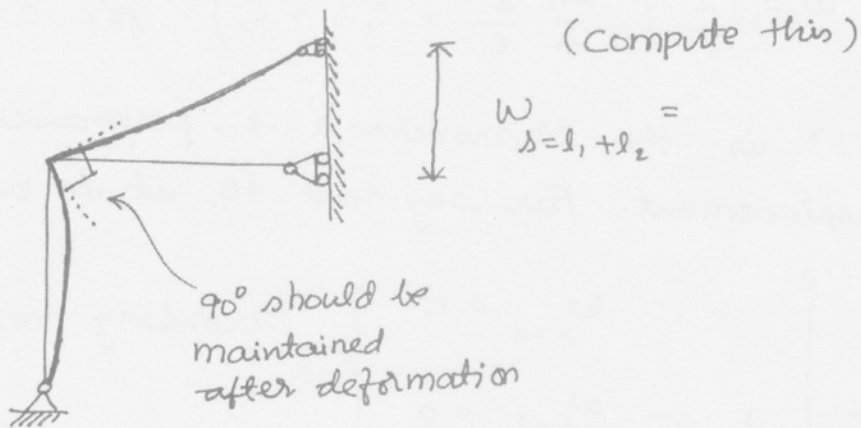 (Compute this)
w s=l₁+l₂ =
90° should be
maintained
after deformation